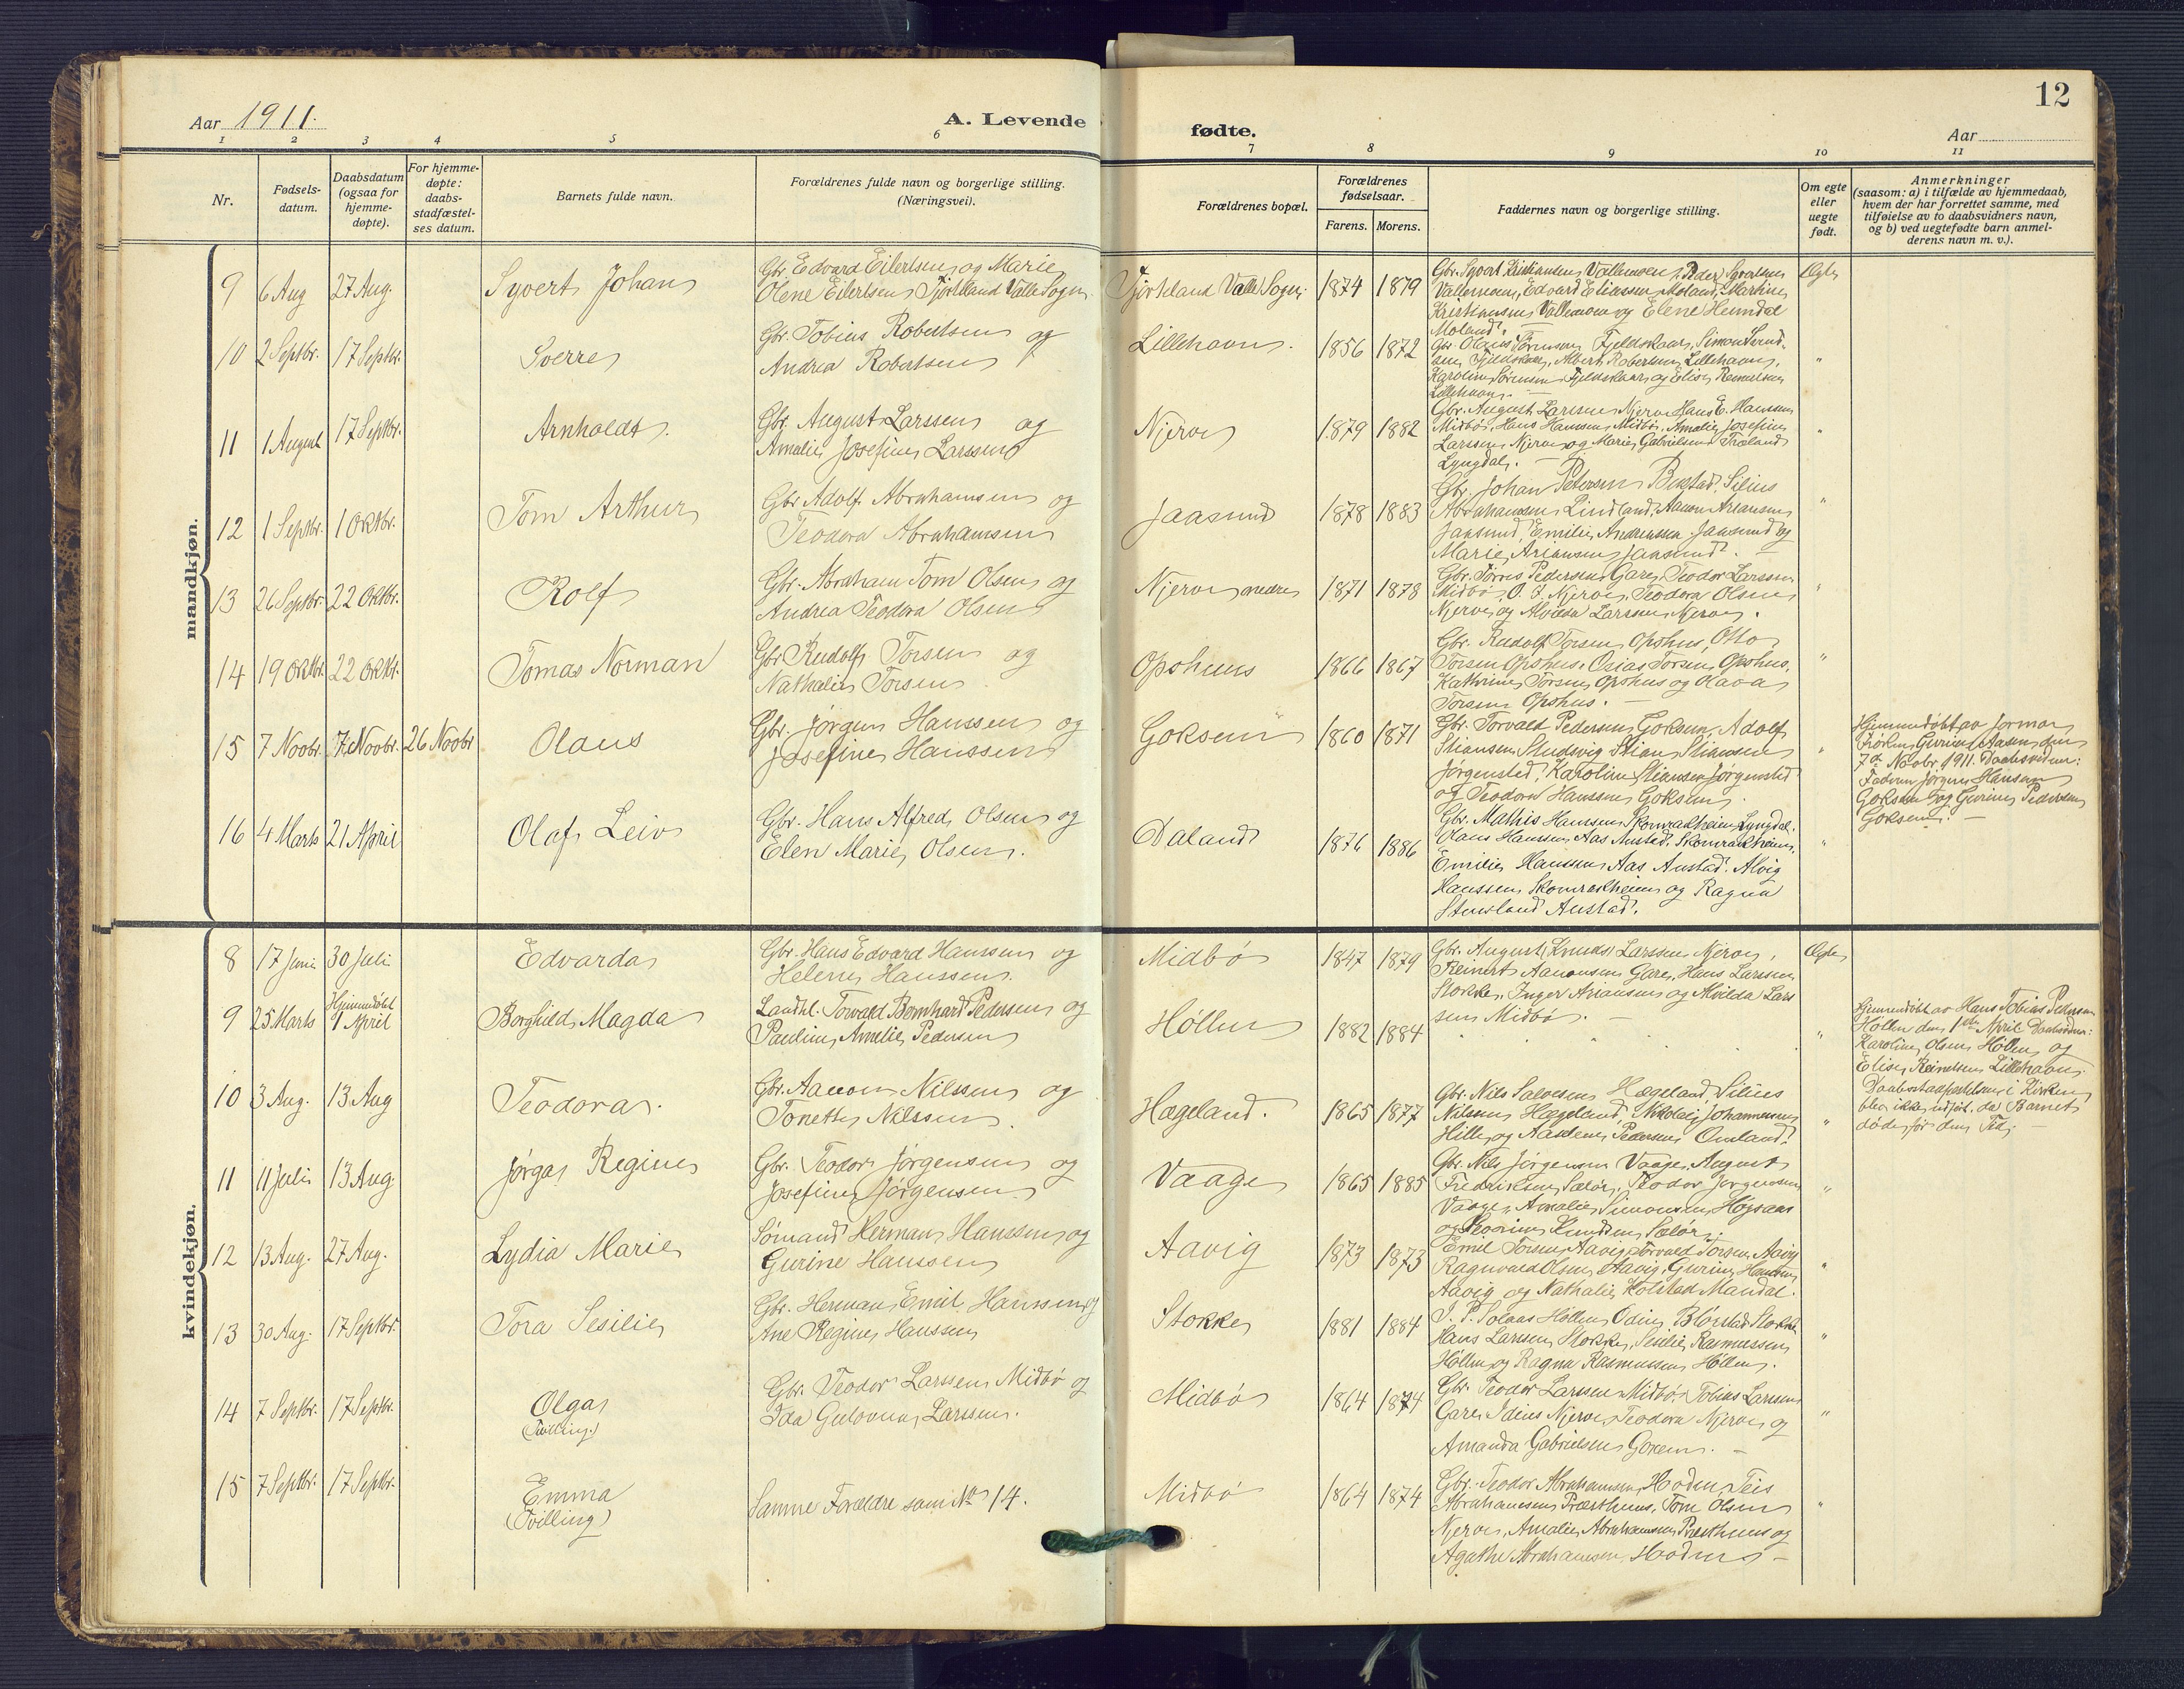 12
Aar 1911.
A. Levende
fødte.
Aar
1 2 3 4 5 6 7 8 9 10 11
Nr.
Fødsels-
datum.
Daabsdatum
(ogsaa for
hjemme-
døpte).
For hjemme-
døpte:
daabs-
stadfæstel-
ses datum.
Barnets fulde navn.
Forældrenes fulde navn og borgerlige stilling.
(Næringsvei).
Forældrenes bopæl.
Forældrenes
fødselsaar.
Farens. Morens.
Faddernes navn og borgerlige stilling.
Om egte
eller
uegte
født.
Anmerkninger
(saasom: a) i tilfælde av hjemmedaab,
hvem der har forrettet samme, med
tilføielse av to daabsvidners navn,
og b) ved uegtefødte barn anmel-
derens navn m. v.).
mandkjøn.
9 6 Aug 27 Aug. Syvert Johan
Gbr. Edvard Eilertsen og Marie
Olene Eilertsen Tjortland Valle Sogn
Tjorteland Valle Sogn. 1874 1879
Gbr. Syvert Kristiansen Vallemoen, Peder Syvertsen
Vallemoen, Edvard Eliassen Moland, Martine
Kristiansen Vallemoen og Elene Heimdal
Moland.
Ægte
10 2 Septbr. 17 Septbr. Sverre
Gbr. Tobias Robertsen og
Andrea Robertsen
Lillehavn. 1856 1872
Gbr. Olaus Sørensen Fjeldskaar, Simon
Fjeldskaar, Albert Robertsen Lillehavn,
Karoline Sørensen Fjeldskaar og Elise
Lillehavn. "
11 1 August 17 Septbr. Arnholdt.
Gbr. August Larssen og
Amalie Josefine Larssen
Njerve 1879 1882
Gbr. August Larssen Njerve Hans E. Hanssen
Midbø, Hans Hanssen Midbø, Amalie Josefine
Larssen Njerve og Marie Gabrielsen
Lyngdal. "
12 1 Septbr. 1 Oktbr. Tom Arthur
Gbr. Adolf Abrahamsen og
Teodora Abrahamsen
Jaasund 1878 1883
Gbr. Johan Petersen Silius
Abrahamsen Lindland, Aanon Ariansen
Jaasund, Emilie Andreassen Jaasund og
Marie Ariansen Jaasund. "
13 26 Septbr. 22 Oktbr. Rolf
Gbr. Abraham Tom Olsen og
Andrea Teodora Olsen
Njerve nedre 1871 1878
Gbr. Tørres Pedersen Gare, Teodor Larssen
Midbø, O. J. Njerve, Teodora Olsen
Njerve og Alvilda Larssen Njerve. "
14 19 Oktbr. 22 Oktbr. Tomas Norman
Gbr. Rudolf Torsen og
Nathalie Torsen
Opshuus 1866 1867
Gbr. Rudolf Torsen Opshus, Otto
Torsen Opshus, Osias Torsen Opshus,
Kathrine Torsen Opshus og Olava
Torsen Opshus. "
15 7 Novbr. 7 Novbr. 26 Novbr Olaus
Gbr. Jørgen Hanssen og
Josefine Hanssen
Goksem 1860 1871
Gbr. Torvald Pedersen Goksem, Adolf
Stiansen, Studsvig Stian Stiansen
Jørgensted, Karoline Stiansen Jørgensted
og Teodora Hanssen Goksem. "
Hjemmedøbt av Jormor
Frøken Gurine Aasen den
7de Novbr. 1911. Daabsvidner:
Faderen Jørgen Hanssen
Goksem og Gurine Pedersen
Goksem.
16 4 Marts 21 April Olaf Leiv
Gbr. Hans Alfred Olsen og
Elen Marie Olsen.
Daland 1876 1886
Gbr. Mathis Hanssen Skomrakheien Lyngdal.
Olaus Hanssen Aas Austad. Skomrakheien.
Emilie Hanssen Aas Austad. Alvig
Hanssen Skomrakheien og Ragna
Stuvland Austad. "
kvindekjøn.
8 17 Juni 30 Juli Edvarda
Gbr. Hans Edvard Hanssen og
Helene Hanssen.
Midbø 1847 1879
Gbr. August Knuds Larssen Njerve,
Reinert Aanonsen Gare, Hans Larssen
Stokke, Inger Ariansen og Alvilda Lars
sen Midbø.
Ægte
9 25 Marts Hjemmedøbt
1 April Borghild Magda
Landhl. Torvald Bernhard Pedersen og
Pauline Amelie Pedersen
Høllen 1882 1884 "
Hjemmedøbt av Hans Tobias Pedersen
Høllen den 1ste April Daabsvidner:
Karoline Olsen Høllen og
Elise Lillehavn.
Daabsstadfæstelsen i Kirken
blev ikke udført, da Barnet
døde før den Tid.
10 3 Aug. 13 Aug Teodora.
Gbr. Aanon Nilssen og
Tonette Nilssen.
Hægeland. 1865 1877
Gbr. Nils Salvesen Hægeland, Silius
Nilssen Hægeland, Nikolaij Johannessen
Hille og Aasdene Pedersen Omland. "
11 11 Juli 13 Aug. Jørga Regine
Gbr. Teodor Jørgensen og
Josefine Jørgensen
Vaage 1865 1885
Gbr. Nils Jørgensen Vaage, August
Fredriksen Sælør, Teodor Jørgensen
Vaage, Amalie Simonsen Høgsaas
og Knudsen Sælør. "
12 13 Aug. 27 Aug. Lydia Marie
Sømand Herman Hanssen og
Gurine Hanssen
Aavig 1873 1873
Emil Torsen Aavig, Torvald Torsen Aavig
Ragnvald Olsen Aavig, Gurine Hanssen
Aavig og Nathalie Holstad Mandal. "
13 30 Aug. 17 Septbr. Tora Sesilie
Gbr. Herman Emil Hanssen og
Ane Regine Hanssen
Stokke 1881 1884
J. P. Solaas Høllen, Odin Stokke
Hans Larssen Stokke, Sesilie Rasmussen
Høllen og Ragna Rasmussen Høllen. "
14 7 Septbr. 17 Septbr. Olga
(Tvilling)
Gbr. Teodor Larssen Midbø og
Ida Gulovna Larssen.
Midbø 1864 1874
Gbr. Teodor Larssen Midbø, Tobias Larssen
Gare, Njerve, Teodora Njerve og
Amanda Gabrielsen. "
15 7 Septbr. 17 Septbr. Emma
(Tvilling)
Samme Forældre som No 14.
Midbø 1864 1874
Gbr. Teodor Abrahamsen Teis
Abrahamsen Præsthuus, Tom Olsen
Njerve, Amalie Abrahamsen Præsthuus og
Agathe Abrahamsen "